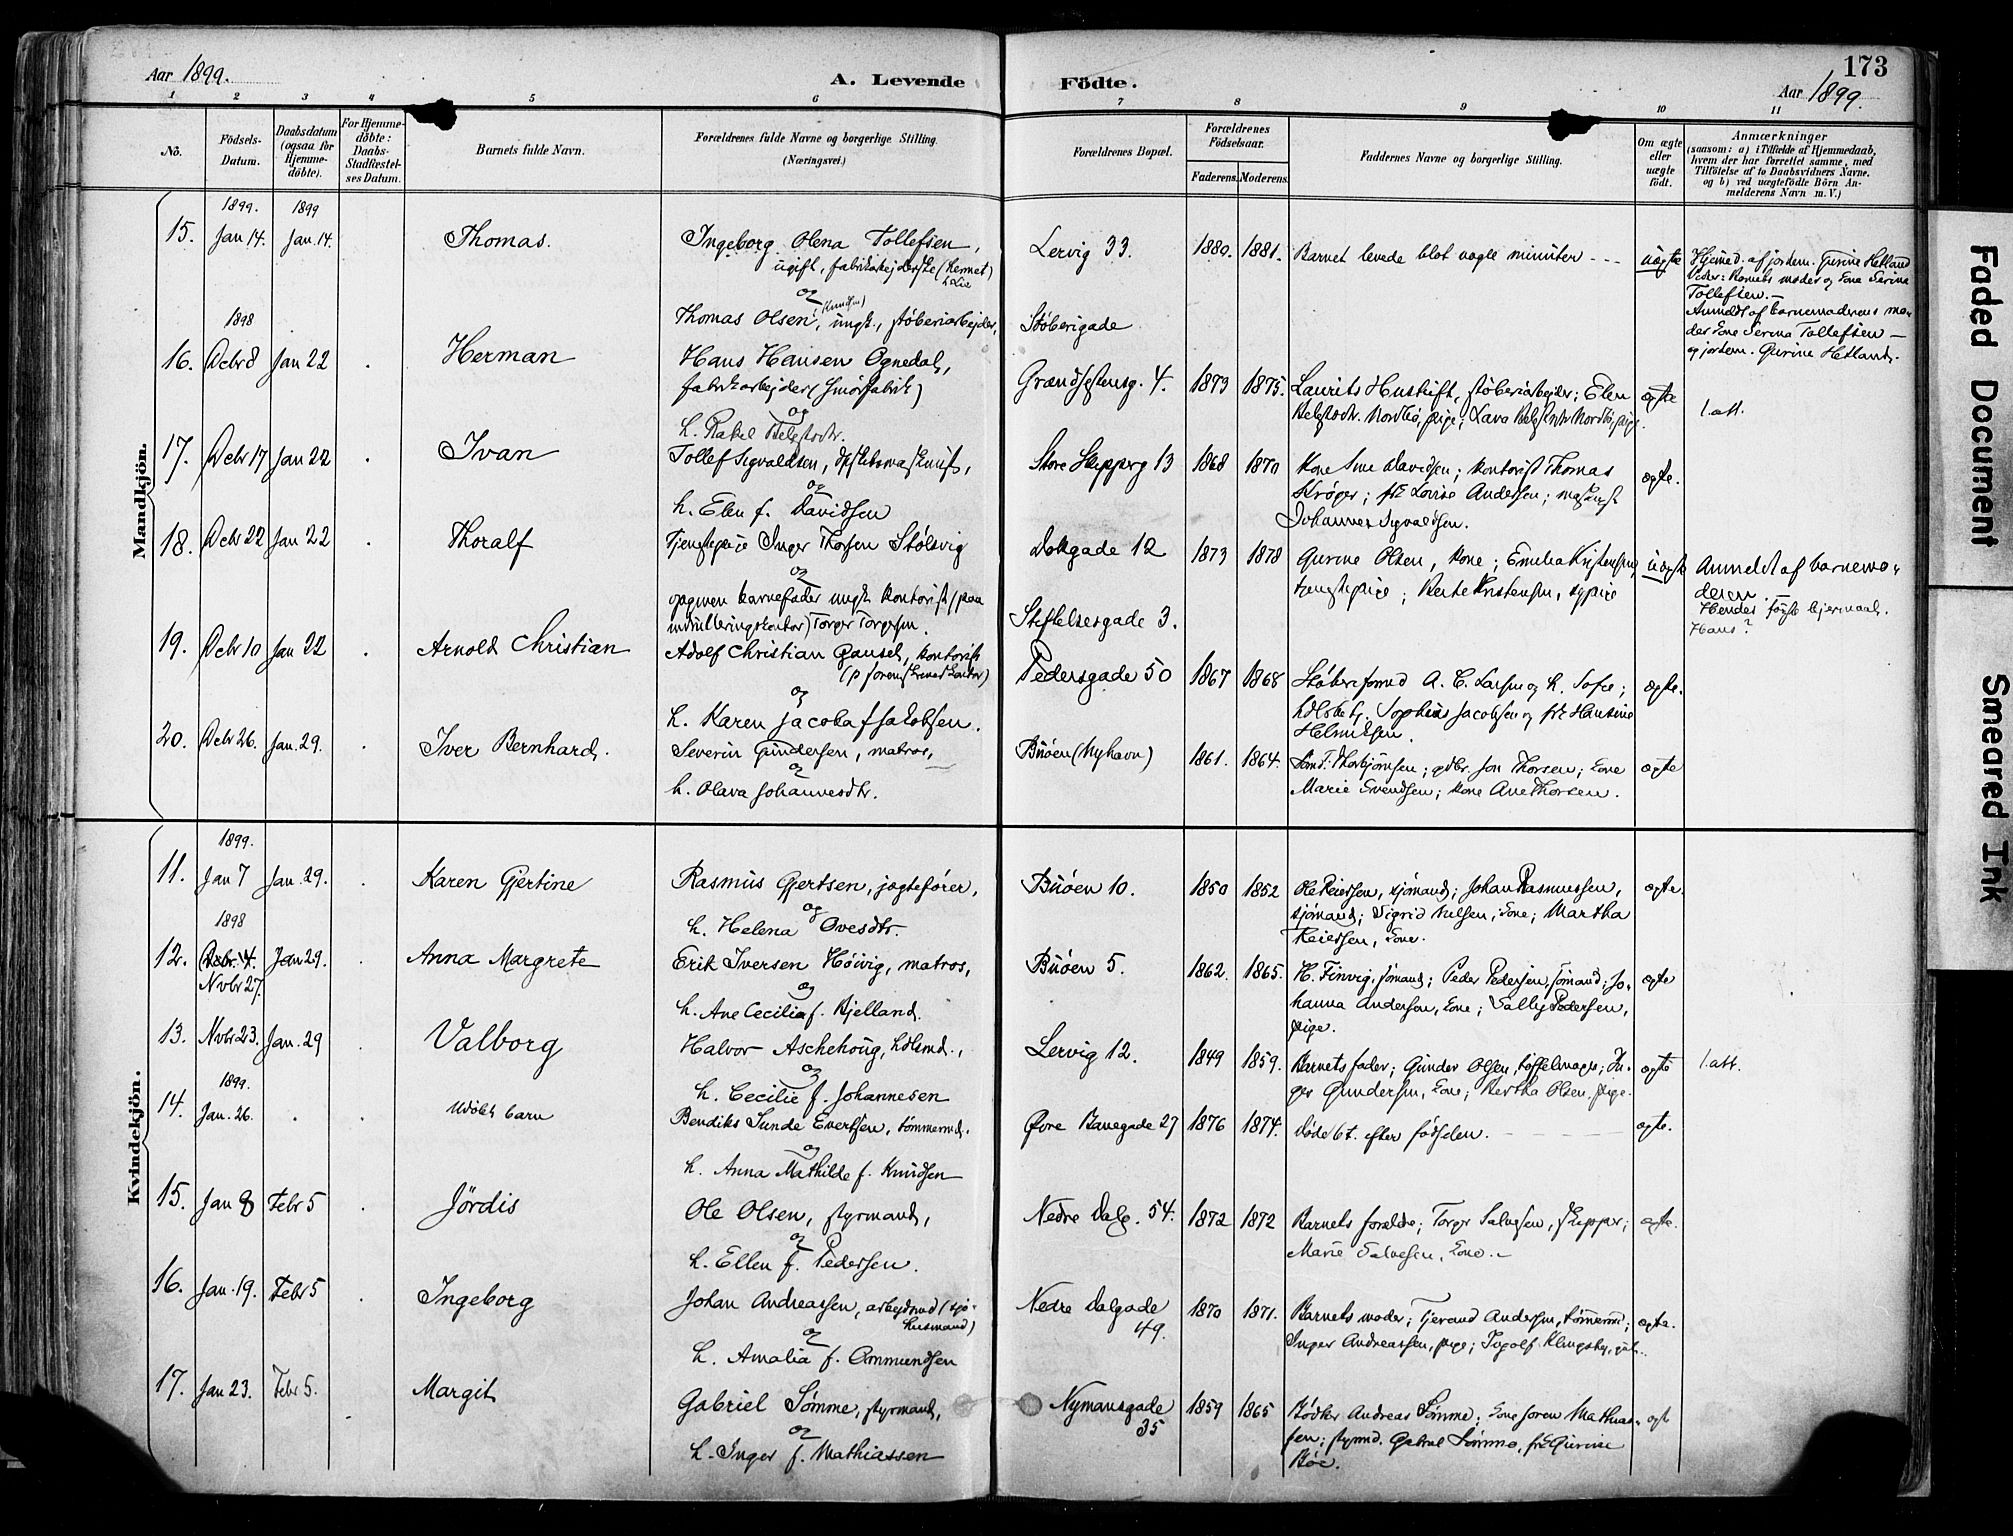 Aar 1899.
A. Levende
Födte.
173
Aar 1899.
1 2 3 4 5 6 7 8 9 10 11
No.
Födsels-
Datum.
Daabsdatum
(ogsaa for
Hjemme-
döbte).
For Hjemme-
döbte:
Daabs-
Stadfæstel-
ses Datum.
Barnets fulde Navn.
Forældrenes fulde Navne og borgerlige Stilling.
(Næringsvei.)
Forældrenes Bopæl.
Forældrenes
Födselsaar.
Faderens.
Moderens.
Faddernes Navne og borgerlige Stilling.
Om ægte
eller
uægte
födt.
Anmærkninger
(saasom: a) i Tilfælde af Hjemmedaab,
hvem der har forrettet samme, med
Tilföielse af to Daabsvidners Navne.
og b) ved uægtefödte Börn An-
melderens Navn m. V.)
Mandkjön.
1899. 1899
15. Jan 14. Jan. 14. Thomas.
Ingeborg Olena Tollefsen,
ugift, fabrikarbejderske
og
Thomas Olsen, ungk., støberiarbejder,
Lervig 33.
Støberigade
1880. 1881.
Barnet levede blot nogle minuter
uægte
Hjemmed. af jordem. Gurine Hetland
Vidner: Barnets moder og kone Serina
Tollefsen.
Anmeldt af barnemoderens mo-
der kone Serina Tollefsen
og jordem. Gurine Hetland.
1898
16. Decbr 8 Jan 22 . Herman
Hans Hansen Ognedal,
fabrikarbejder (smørfabrik)
og
h. Rakel Helgesdtr.
4. 1873 1875.
Laurits Hustuft, støberiarbejder; Elen
Nordbø, pige; Nordbø, pige.
ægte
1. att.
17. Decbr 17 Jan 22 . Ivan
Tollef Sigvaldsen,
og
h. Elen f. Davidsen
Store Skipperg 13 1868 1870
Kone Davidsen; kontorist Thomas
Krøger; frk Lovise Andersen;
Johannes Sigvaldsen.
ægte.
18. Decbr 22 Jan 22 . Thoralf
Tjenestepige Inger Thorsen Stølsvig
og
opgiven barnefader ungk. kontorist (paa
Torger Torgersen.
Dokgade 12
Stiftelsesgade 3.
1873 1878
Gurine Olsen, kone; Emilia Kristensen,
tjenestepige; Berte Kristensen, sypige
uægte
Anmeldt af barnemo-
deren.
Hendes første lejermaal.
Hans?
19. Decbr 10 Jan 22 . Arnold Christian
Adolf Christian Gausel, kontorist
og
h. Karen Jacoba f Jakobsen.
Pedersgade 50 1867 1868
Støberiformd A. C. Larsen og h. Sofie;
Sophus Jacobsen og frk Hansine
Helmiksen.
ægte.
20. Decbr 26. Jan. 29. . Iver Bernhard.
Severin Gundersen, matros,
og
h. Olava Johannesdtr.
Buøen (Nyhavn) 1861. 1864.
Thorbjørnsen; gdbr. Jon Thorsen; kone
Marie Svendsen; kone Ane Thorsen.
ægte
Kvindekjön.
1899.
11. Jan 7 Jan. 29. . Karen Gjertine
Rasmus Gjertsen, jagtefører,
og
h. Helena Ovesdtr.
Buøen 10. 1850 1852
Ole Reiersen, sjømand; Johan Rasmussen,
sjømand; Sigrid Nilsen, kone; Martha
Reiersen, kone.
ægte.
1898
12. Decbr. 4. Jan 29. . Anna Margrete
Nvbr 27.
Erik Iversen Høivig, matros,
og
h. Ane Cecilia f. Bjelland.
Buøen 5. 1862. 1865.
H. Finvig, sømand; Peder Pedersen, sømand; Jo-
hanna Andersen, kone; Sally Pedersen,
pige.
ægte
13. Nvbr 23. Jan. 29 . Valborg
Halvor Aschehoug, hdlsmd.,
og
h. Cecilie f. Johannesen
Lervig 12. 1849 1859.
Barnets fader; Gunder Olsen, tøffelmager; In-
ger Gundersen, kone; Bertha Olsen, pige.
ægte
1. att.
1899.
14. Jan. 26. . . Udøbt barn
Bendiks Sunde Evertsen, tømmermd.
og
h. Anna Mathilde f. Knudsen
Øvre Banegade 27 1876 1874.
Døde 6 t. efter fødselen.
ægte.
15. Jan 8 Febr 5 . Jördis
Ole Olsen, styrmand,
og
h. Ellen f. Pedersen.
Nedre Dalg. 54. 1872 1872
Barnets forældre; Torger Salvesen, skipper;
Marie Salvesen, kone.
ægte.
16. Jan. 19. Febr 5 . Ingeborg
Johan Andreassen, arbejdsmd (sjø-
husmand)
og
h. Amalia f. Ommundsen
Nedre Dalgade
49.
1870 1871.
Barnets moder; Tjerand Andersen, tømmermd;
Inger Andreassen, pige; Ingolf
ægte.
17. Jan 23. Febr 5. . Margit
Gabriel Sømme, styrmand,
og
h. Inger f. Mathiassen
Nymansgade
35
1859 1865
Bødker Andreas Sømme; kone Soren Mathias-
sen; styrmd. Gabriel Sømme, frk Gurine
Bøe.
ægt
Faded Document
Smeared Ink